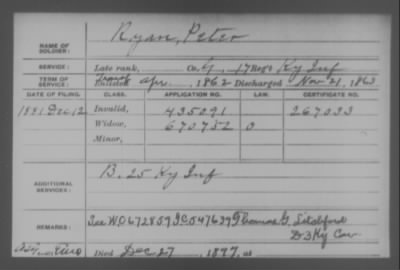 NAME OF SOLDIER: Ryan, Peter
SERVICE: Late rank, Co. G, 17 Reg't Ky Inf
TERM OF SERVICE: Enlisted Apr. , 1862 Discharged Nov 21, 1863
DATE OF FILING. CLASS. APPLICATION NO. LAW. CERTIFICATE NO.
1881 Dec 12 Invalid, 435091 267033
Widow, 670752 0
Minor,
ADDITIONAL SERVICES: B. 25 Ky Inf
REMARKS: See WC 672859 IC 547639 Thomas G.
D3 Ky Cav.
Died Dec 27, 1897, at